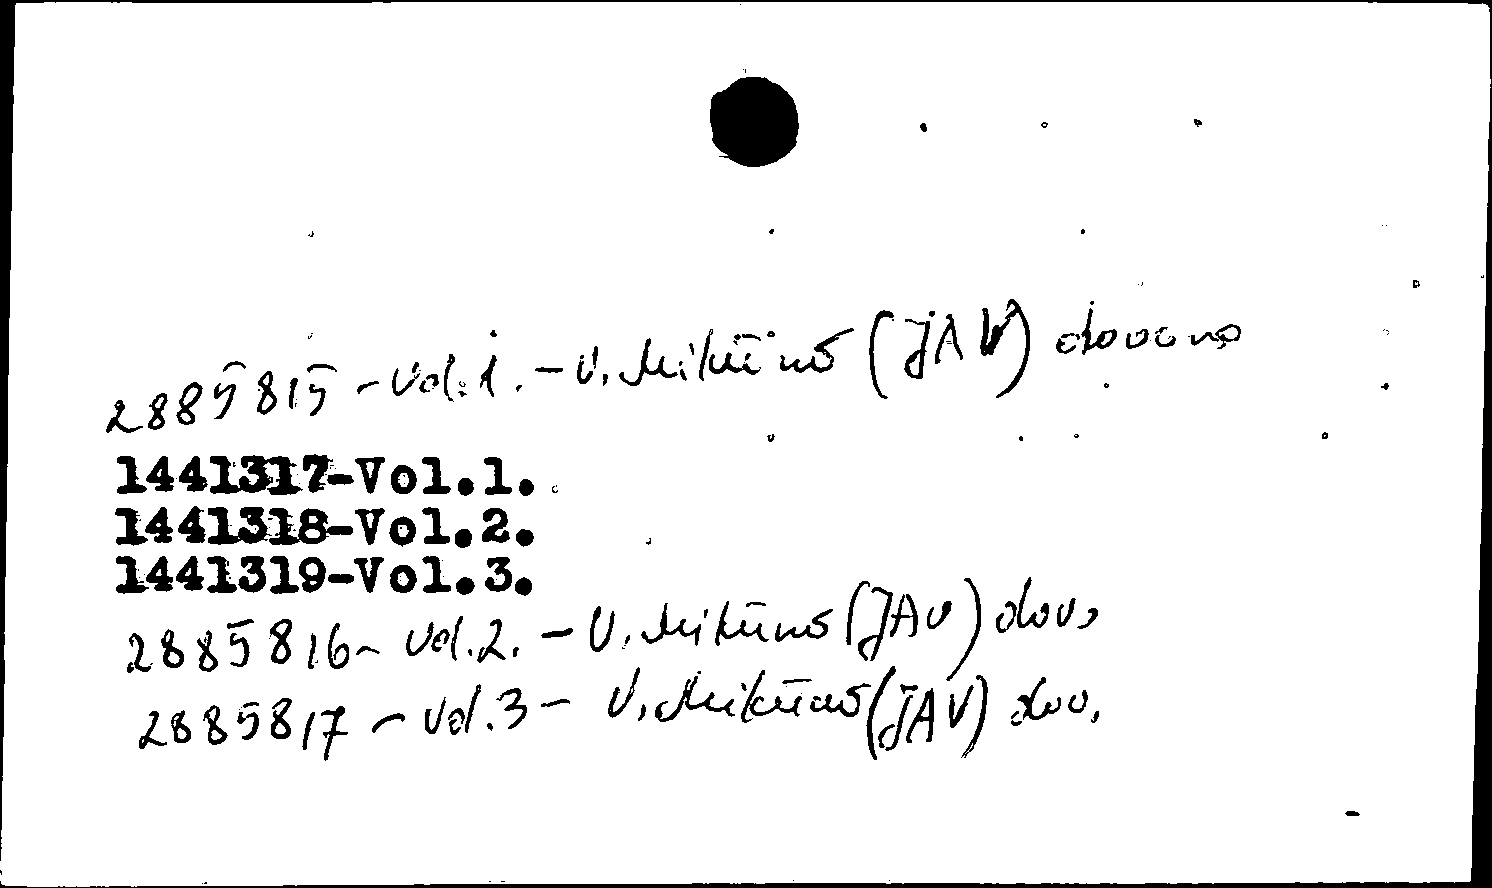 2885815 - Vol.1. - V. Mikūno (JAV) dovana
1441317-Vol.1.
1441318-Vol.2.
1441319-Vol.3.
2885816 - Vol.2. - V. Mikūno (JAV) dov.
2885817 - Vol.3 - V. Mikūno (JAV) dov.